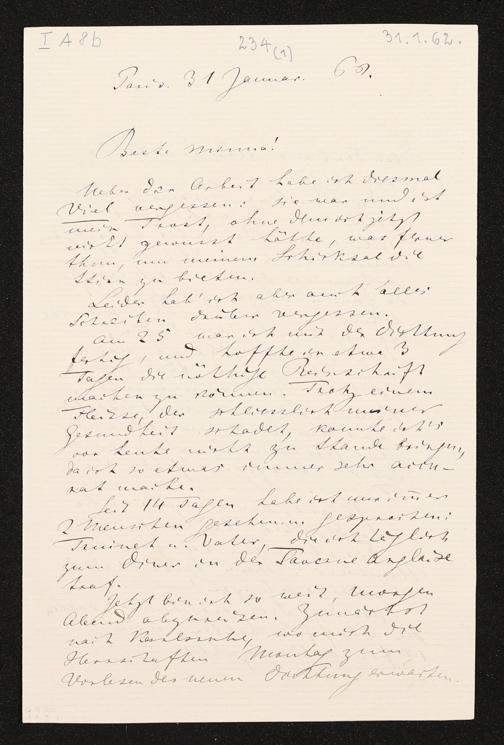 I A 8b
234
(1)
31.1.62.
Paris. 31 Januar. 62.
Beste Minna!
Ueber der Arbeit habe ich diesmal
Viel vergessen: sie war und ist
mein Trost, ohne den ich jetzt
nicht gewusst hätte, was ferner
thun, um meinem Schicksal die
Stirn zu bieten.
Leider hab' ich aber auch alles
Schreiben darüber vergessen.
Am 25 war ich mit der Dichtung
fertig, und hoffte in etwa 3
Tagen die nöthige Reinschrift
machen zu können. Trotz einem
Fleisse, der schliesslich meiner
Gesundheit schadet, konnte ich's
vor heute nicht zu Stande bringen,
da ich so etwas immer sehr accu-
rat mache.
Seit 14 Tagen habe ich nur immer
2 Menschen gesehen u. gesprochen:
Truinet u. Vater, die ich täglich
zum Diner in der Taverne anglaise
traf.
Jetzt bin ich so weit, morgen
Abend abzureisen. Zunächst
nach Karlsruhe, wo mich die
Herrschaften Montag zum
Vorlesen der neuen Dichtung erwarten.